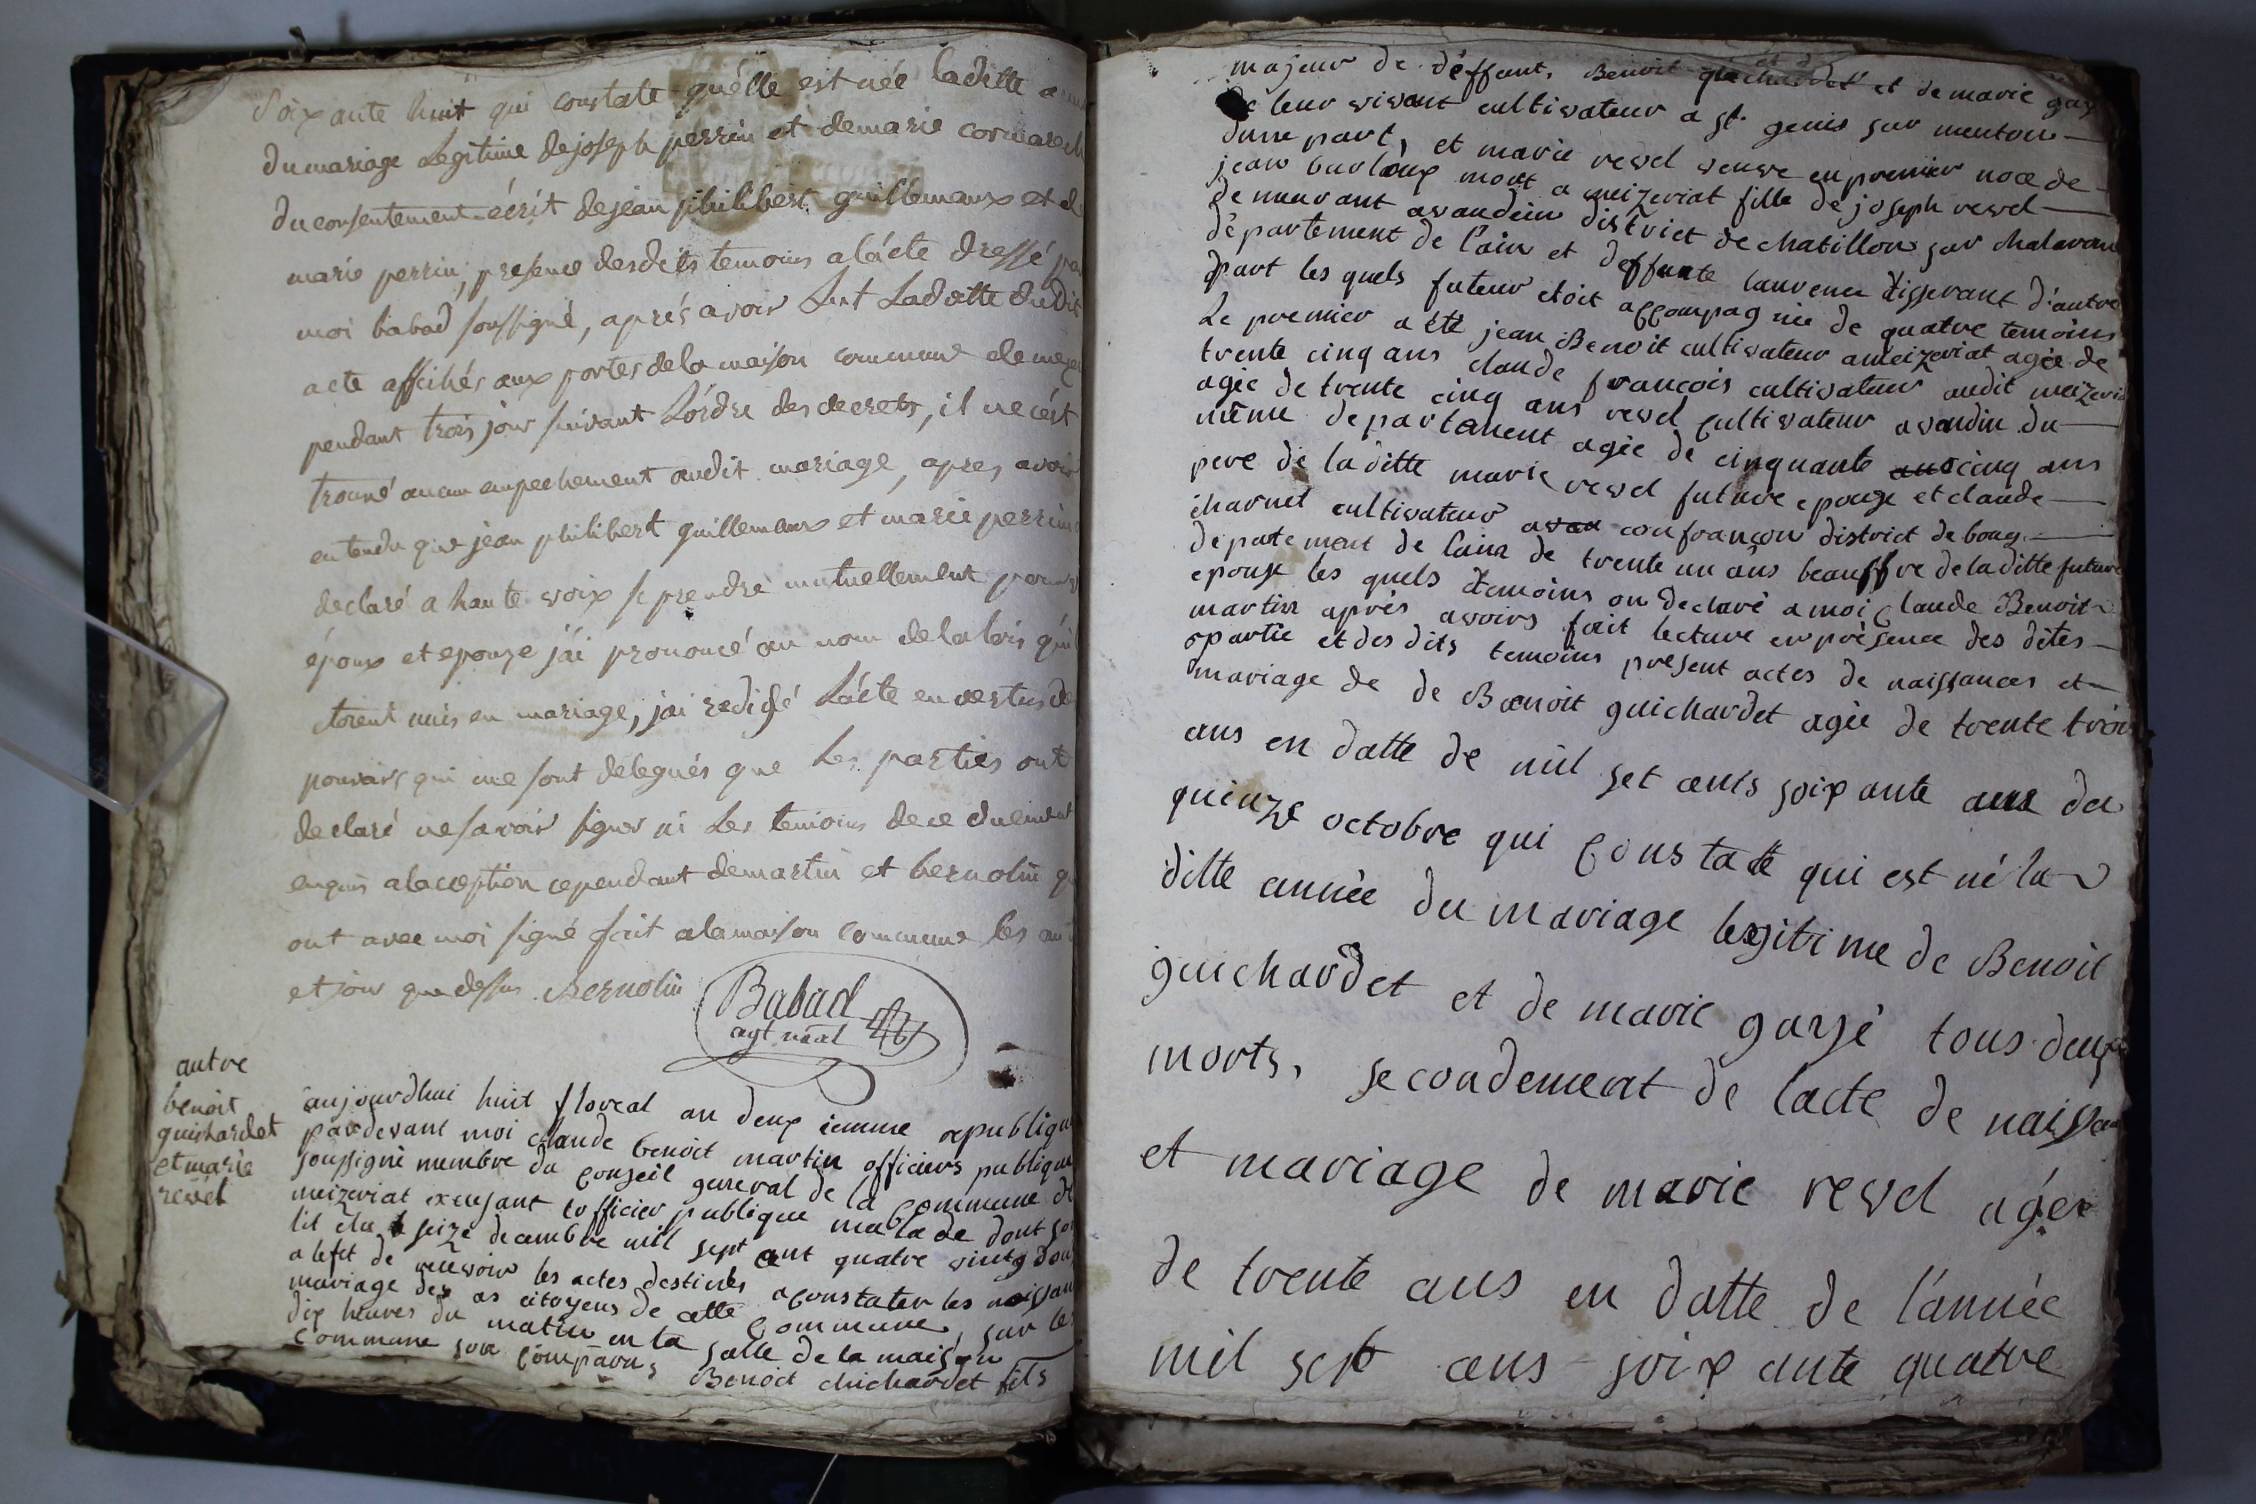 Soixante huit qui constate quélle est née ladille a
du mariage Legitime de joseph perrin et de marie cormarech
du consentement écrit de jean philibert guillemaux et d
marie perrin; presence desdits temoins a lácte dressé par
moi babad soussigné, aprés avoir Lut Ladatte dudit
acte affichés aux portes de la maison commune de meze
pendant trois jour suivant Lórdre des decrets, il ne cést
trouvé aucun empechement audit mariage, apres avoir
entendu que jean philibert guillemaux et marie perrin
declaré a haute voix se prendre mutuellement pour
époux et epouze jái prononcé au nom de la lois quíl
étoient unis en mariage, jái redigé Lácte en vertus de
pouvoirs qui me sont delegués que Les parties ont
declaré ne savoir signer ni Les temoins de ce duement
enquis a laception cependant de martin et bernolin q
ont avec moi signé fait a la maison commune les an
et jour que dessus Bernolin
Babad
agt naal
autre
benoit
guichardet
et marie
revel
aujourdhui huit floreal an deux iemme republique
pardevant moi claude benoit martin officiers publique
soussigné membre du conseil general de la commune de
meizeriat exersant lofficier publique malade dont so
lit élu le seize decembre mil sept cent quatre vingt dou
a lefet de recevoir les actes destinés a constater les naissan
mariage des citoyens de cette commune, sur les
dix heures du mattin en la salle de la maison
commune son comparus Benoit chichardet fils
majeur de déffunt, Benoit guichardet et de marie gas
de leur vivant cultivateur a st. genis sur menton
dune part, et marie revel veuve en premier noce de
jean burloux mort a meizeriat fille de joseph revel
demeurant avandein district de chatillon sur chalaron
département de láin et deffunte laurence tisserant dáutre
part les quels futeur etoit accompagnié de quatre temoins
Le premier a été jean Benoit cultivateur a meizeriat agée de
trente cinq ans claude francois cultivateur audit meizeri
agée de trente cinq ans revel cultivateur avandin du
même departament agée de cinquante cinq ans
pere de la ditte marie revel future epouze et claude
charnet cultivateur a confrançon district de bourg
departement de lain de trente un ans beauffre de la ditte future
epouse les quels temoins on declaré a moi claude Benoit
martin aprés avoirs fait lecture en présence des dites
partie et des dits temoins present actes de naissances et
mariage de de Benoit guichardet agée de trente trois
ans en datte de mil set cents soixante ans du
quinze octobre qui constate qui est né la
ditte année du mariage legitime de Benoit
guichardet et de marie garsé tous deux
morts, secondement de lacte de naissan
et mariage de marie revel agée
de trente ans en datte de lánnée
mil sept cens soixante quatre